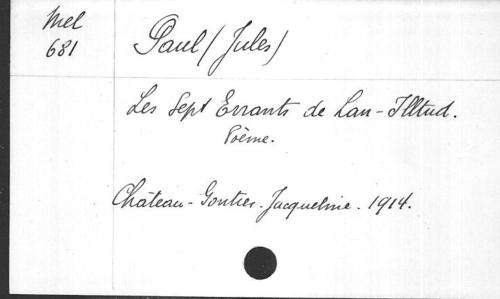 Mel
681
Paul (Jules)
Les Sept Errants de Lan-Illtud.
Poème.
Château-Gontier. Jacqueline. 1914.